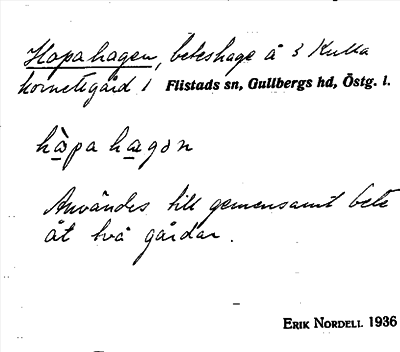 Hopahagen, beteshage å 3 Kulla
kornetsgård 1 Flistads sn, Gullbergs hd, Östg. l.
hò̱pa ha̱gən
Användes till gemensamt bete
åt två gårdar.
ERIK NORDELL 1936